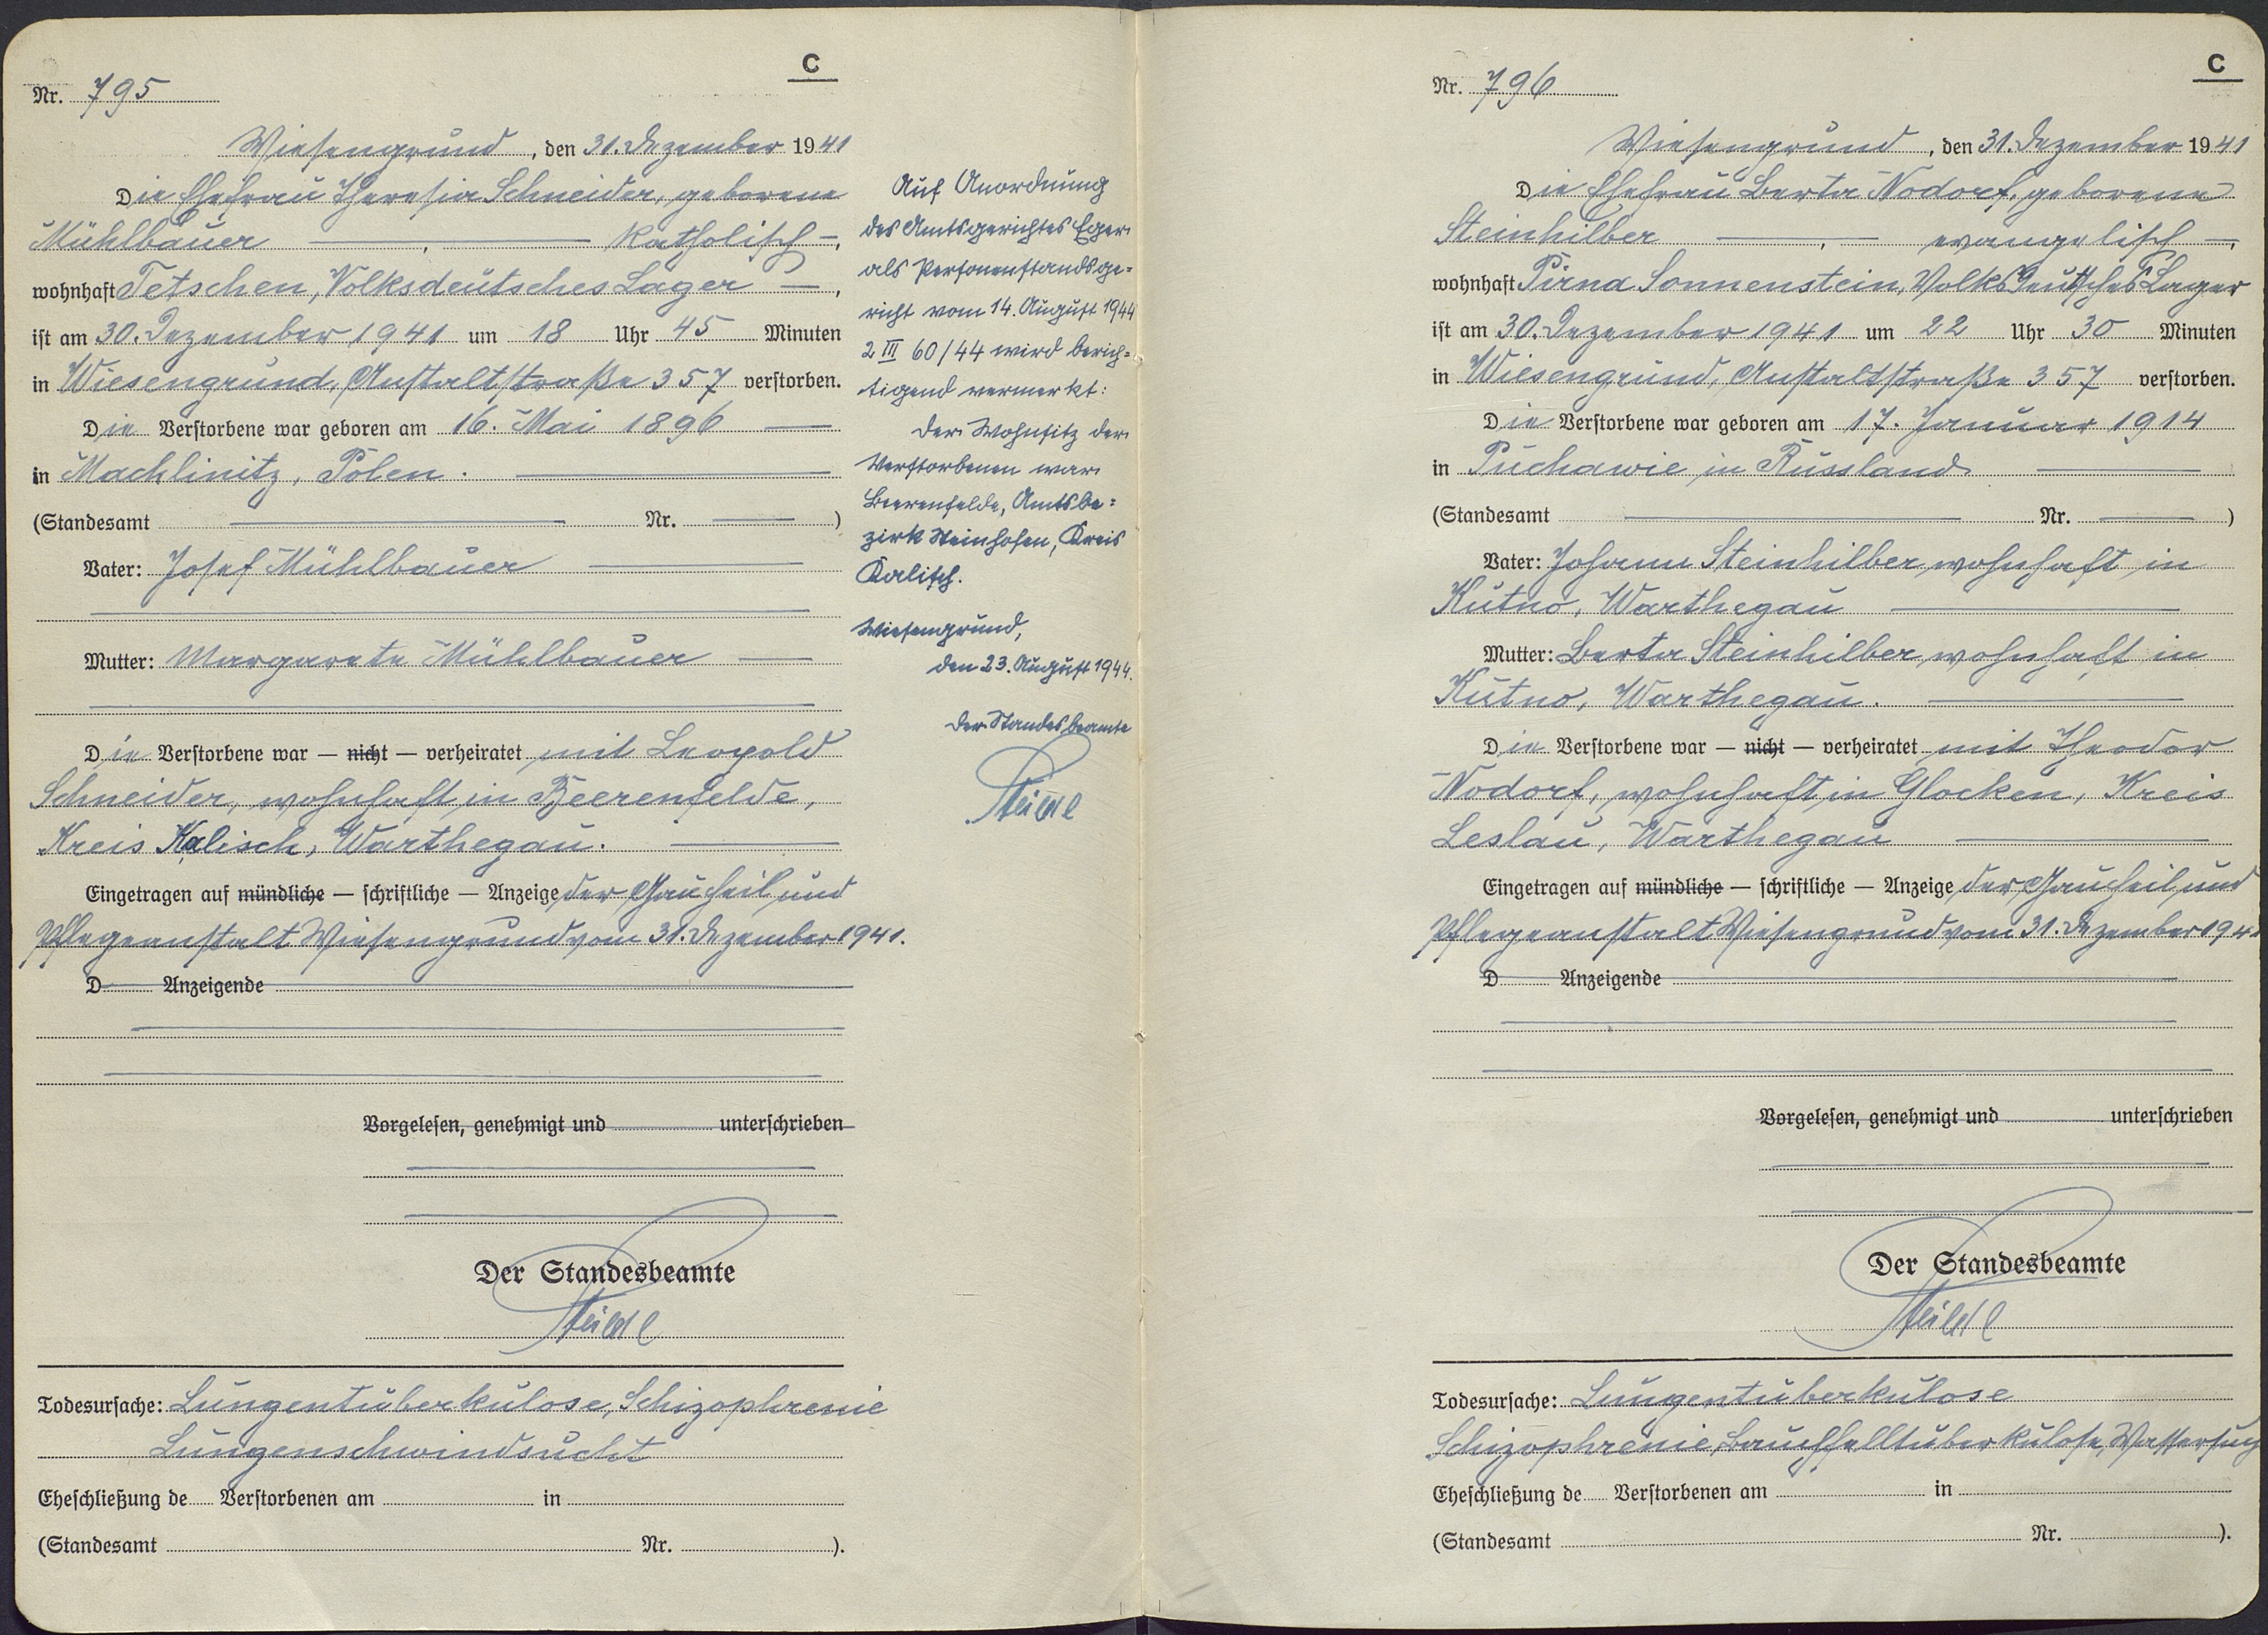 C
Nr. 795
Wiesengrund, den 31. Dezember 1941
Die Ehefrau Theresia Schneider, geborene
Mühlbauer — katholisch —,
wohnhaft Tetschen, Volksdeutsches Lager —,
ist am 30. Dezember 1941 um 18 Uhr 45 Minuten
in Wiesengrund, Anstaltstraße 357 verstorben.
Die Verstorbene war geboren am 16. Mai 1896 —
in Machlinitz, Polen. —
(Standesamt — Nr. — )
Vater: Josef Mühlbauer —
Mutter: Margarete Mühlbauer —
Die Verstorbene war — nicht — verheiratet mit Leopold
Schneider, wohnhaft in Beerenfelde,
Kreis Kalisch, Warthegau. —
Eingetragen auf mündliche — schriftliche — Anzeige der Gauheil und
Pflegeanstalt Wiesengrund vom 31. Dezember 1941.
D Anzeigende
Vorgelesen, genehmigt und unterschrieben
Der Standesbeamte
Todesursache: Lungentuberkulose, Schizophrenie
Lungenschwindsucht
Eheschließung de Verstorbenen am in
(Standesamt Nr. ).
Auf Anordnung
des Amtsgerichtes Eger
als Personenstandsge=
richt vom 14. August 1944
2 III 60/44 wird berich=
tigend vermerkt:
Der Wohnsitz der
Verstorbenen war
Beerenfelde, Amtsbe=
zirk Steinhofen, Kreis
Kalisch.
Wiesengrund,
den 23. August 1944.
Der Standesbeamte
C
Nr. 796
Wiesengrund, den 31. Dezember 1941
Die Ehefrau Berta Nodorf, geborene
Steinhilber — evangelisch —,
wohnhaft Pirna Sonnenstein, Volksdeutsches Lager
ist am 30. Dezember 1941 um 22 Uhr 30 Minuten
in Wiesengrund, Anstaltstraße 357 verstorben.
Die Verstorbene war geboren am 17. Januar 1914
in Puchawie in Russland —
(Standesamt — Nr. — )
Vater: Johann Steinhilber, wohnhaft in
Kutno, Warthegau —
Mutter: Berta Steinhilber, wohnhaft in
Kutno, Warthegau. —
Die Verstorbene war — nicht — verheiratet mit Theodor
Nodorf, wohnhaft in Glocken, Kreis
Leslau, Warthegau —
Eingetragen auf mündliche — schriftliche — Anzeige der Gauheil und
Pflegeanstalt Wiesengrund vom 31. Dezember 194
D Anzeigende
Vorgelesen, genehmigt und unterschrieben
Der Standesbeamte
Todesursache: Lungentuberkulose
Schizophrenie, Bauchfelltuberkulose, Wassersuch
Eheschließung de Verstorbenen am in
(Standesamt Nr. ).